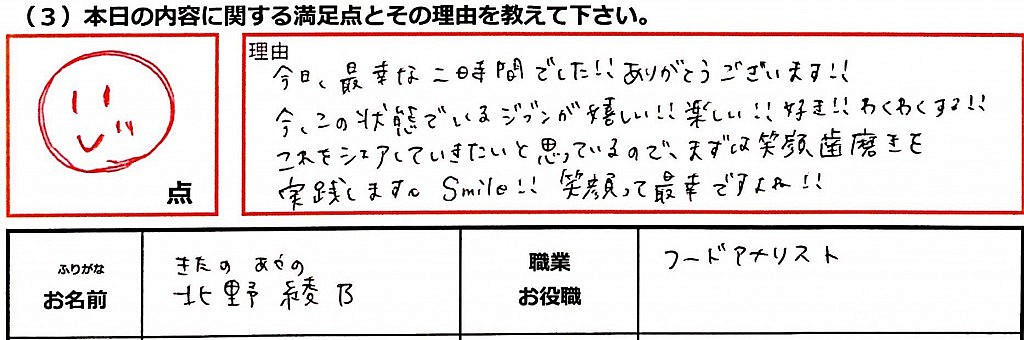 （3）本日の内容に関する満足点とその理由を教えて下さい。
点
理由
今日、最幸な二時間でした!! ありがとうございます!!
今、この状態でいるジブンが嬉しい!! 楽しい!! 好き!! わくわくする!!
これをシェアしていきたいと思っているので、まずは笑顔歯磨きを
実践します。 Smile!! 笑顔って最幸ですよね!!
ふりがな
お名前
きたの あやの
北野 綾乃
職業
お役職
フードアナリスト